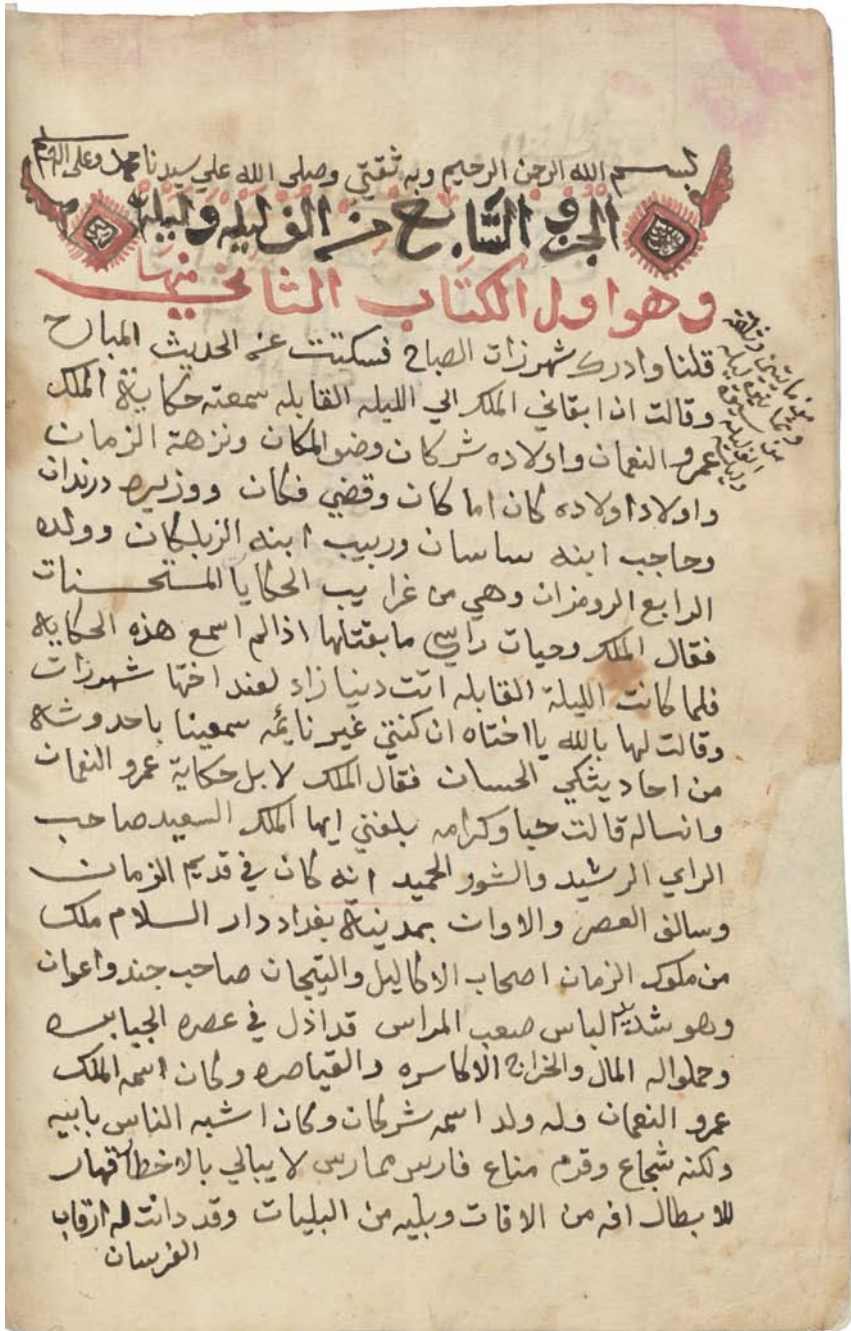 بسم الله الرحمن الرحيم وبه ثقتي وصلى الله علي سيدنا محمد وعلى اله
الجزو السابع من الف ليله وليله
وهو اول الكتاب الثاني منها
قلنا وادرك شهرزات الصباح فسكتت عن الحديث المباح
وقالت ان ابقاني الملك الي الليله القابله سمعته حكاية الملك
عمرو النعمان واولاده شركان وضو المكان ونزهة الزمان
واولاد اولاده كان اما كان وقضي فكان ووزيره درندان
وحاجب ابنه ساسان وربيب ابنه الزبلكان وولده
الرابع الرومزان وهي من غرايب الحكايا المستحسنات
فقال الملك وحيات راسي ما بقتلها اذا لم اسمع هذه الحكاية
فلما كانت الليلة القابله اتت دنيا زاد لعند اختها شهرزات
وقالت لها بالله يا اختاه ان كنتي غير نايمه سمعينا باحدوثة
من احاديثكي الحسان فقال الملك لا بل حكاية عمرو النعمان
وانساله قالت حبا وكرامه بلغني ايها الملك السعيد صاحب
الراي الرشيد والشور الحميد انه كان في قديم الزمان
وسالف العصر والاوان بمدينة بغداد دار السلام ملك
من ملوك الزمان اصحاب الاكاليل والتيجان صاحب جند واعوان
وهو شديد الباس صعب المراس قد اذل في عصره الجبابره
وحملوا له المال والخراج الاكاسره والقياصره وكان اسمه الملك
عمرو النعمان وله ولد اسمه شركان وكان اشبه الناس بابيه
ولكنه شجاع وقرم مناع فارس ممارس لا يبالي بالاخطار قهار
للابطال افه من الافات وبليه من البليات وقد دانت له ارقاب
الفرسان